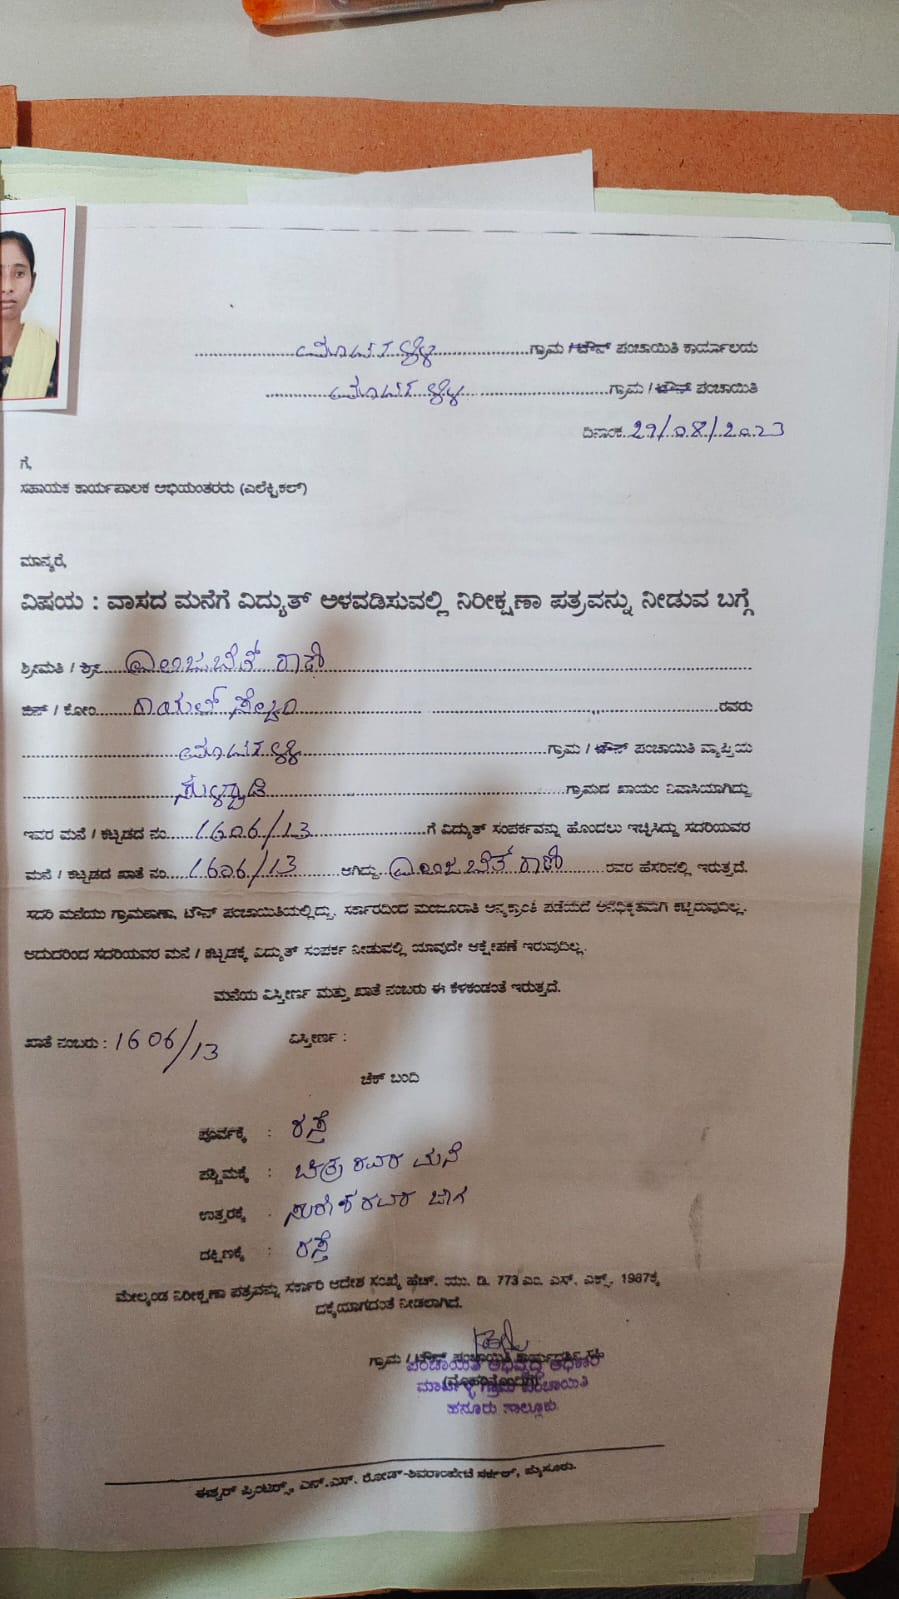 ಮಾರ್ಟಳ್ಳಿ ಗ್ರಾಮ / ಟೌನ್ ಪಂಚಾಯಿತಿ ಕಾರ್ಯಾಲಯ
ಮಾರ್ಟಳ್ಳಿ ಗ್ರಾಮ / ಟೌನ್ ಪಂಚಾಯಿತಿ
ದಿನಾಂಕ 29/08/2023
ಗೆ,
ಸಹಾಯಕ ಕಾರ್ಯಪಾಲಕ ಅಭಿಯಂತರರು (ಎಲೆಕ್ಟ್ರಿಕಲ್)
ಮಾನ್ಯರೆ,
ವಿಷಯ : ವಾಸದ ಮನೆಗೆ ವಿದ್ಯುತ್ ಅಳವಡಿಸುವಲ್ಲಿ ನಿರೀಕ್ಷಣಾ ಪತ್ರವನ್ನು ನೀಡುವ ಬಗ್ಗೆ
ಶ್ರೀಮತಿ / ಶ್ರೀ
ಬಿನ್ / ಕೋಂ ರವರು
ಮಾರ್ಟಳ್ಳಿ ಗ್ರಾಮ / ಟೌನ್ ಪಂಚಾಯಿತಿ ವ್ಯಾಪ್ತಿಯ
ಸುಳ್ವಾಡಿ ಗ್ರಾಮದ ಖಾಯಂ ನಿವಾಸಿಯಾಗಿದ್ದು
ಇವರ ಮನೆ / ಕಟ್ಟಡದ ನಂ. 1606/13 ಗೆ ವಿದ್ಯುತ್ ಸಂಪರ್ಕವನ್ನು ಹೊಂದಲು ಇಚ್ಛಿಸಿದ್ದು ಸದರಿಯವರ
ಮನೆ / ಕಟ್ಟಡದ ಖಾತೆ ನಂ. 1606/13 ಆಗಿದ್ದು ರವರ ಹೆಸರಿನಲ್ಲಿ ಇರುತ್ತದೆ.
ಸದರಿ ಮನೆಯು ಗ್ರಾಮಠಾಣಾ, ಟೌನ್ ಪಂಚಾಯಿತಿಯಲ್ಲಿದ್ದು, ಸರ್ಕಾರದಿಂದ ಮಂಜೂರಾತಿ ಅನ್ಯಕ್ರಾಂತ ಪಡೆಯದೆ ಅನಧಿಕೃತವಾಗಿ ಕಟ್ಟಿರುವುದಿಲ್ಲ.
ಆದುದರಿಂದ ಸದರಿಯವರ ಮನೆ / ಕಟ್ಟಡಕ್ಕೆ ವಿದ್ಯುತ್ ಸಂಪರ್ಕ ನೀಡುವಲ್ಲಿ ಯಾವುದೇ ಆಕ್ಷೇಪಣೆ ಇರುವುದಿಲ್ಲ.
ಮನೆಯ ವಿಸ್ತೀರ್ಣ ಮತ್ತು ಖಾತೆ ನಂಬರು ಈ ಕೆಳಕಂಡಂತೆ ಇರುತ್ತದೆ.
ಖಾತೆ ನಂಬರು : 1606/13 ವಿಸ್ತೀರ್ಣ :
ಚೆಕ್ ಬಂದಿ
ಪೂರ್ವಕ್ಕೆ : ರಸ್ತೆ
ಪಶ್ಚಿಮಕ್ಕೆ : ರವರ ಮನೆ
ಉತ್ತರಕ್ಕೆ : ರವರ ಜಾಗ
ದಕ್ಷಿಣಕ್ಕೆ : ರಸ್ತೆ
ಮೇಲ್ಕಂಡ ನಿರೀಕ್ಷಣಾ ಪತ್ರವನ್ನು ಸರ್ಕಾರಿ ಆದೇಶ ಸಂಖ್ಯೆ ಹೆಚ್. ಯು. ಡಿ. 773 ಎಂ. ಎನ್. ಎಕ್ಸ್. 1987ಕ್ಕೆ
ದಕ್ಕೆಯಾಗದಂತೆ ನೀಡಲಾಗಿದೆ.
ಗ್ರಾಮ / ಟೌನ್ ಪಂಚಾಯಿತಿ ಕಾರ್ಯದರ್ಶಿ ಸಹಿ
ಪಂಚಾಯಿತಿ ಅಭಿವೃದ್ಧಿ ಅಧಿಕಾರಿ
(ಮೊಹರಿನೊಂದಿಗೆ)
ಮಾರ್ಟಳ್ಳಿ ಗ್ರಾಮ ಪಂಚಾಯಿತಿ
ಹನೂರು ತಾಲ್ಲೂಕು.
ಈಶ್ವರ್ ಪ್ರಿಂಟರ್ಸ್, ಎನ್.ಎಸ್. ರೋಡ್-ಶಿವರಾಂಪೇಟೆ ಸರ್ಕಲ್, ಮೈಸೂರು.